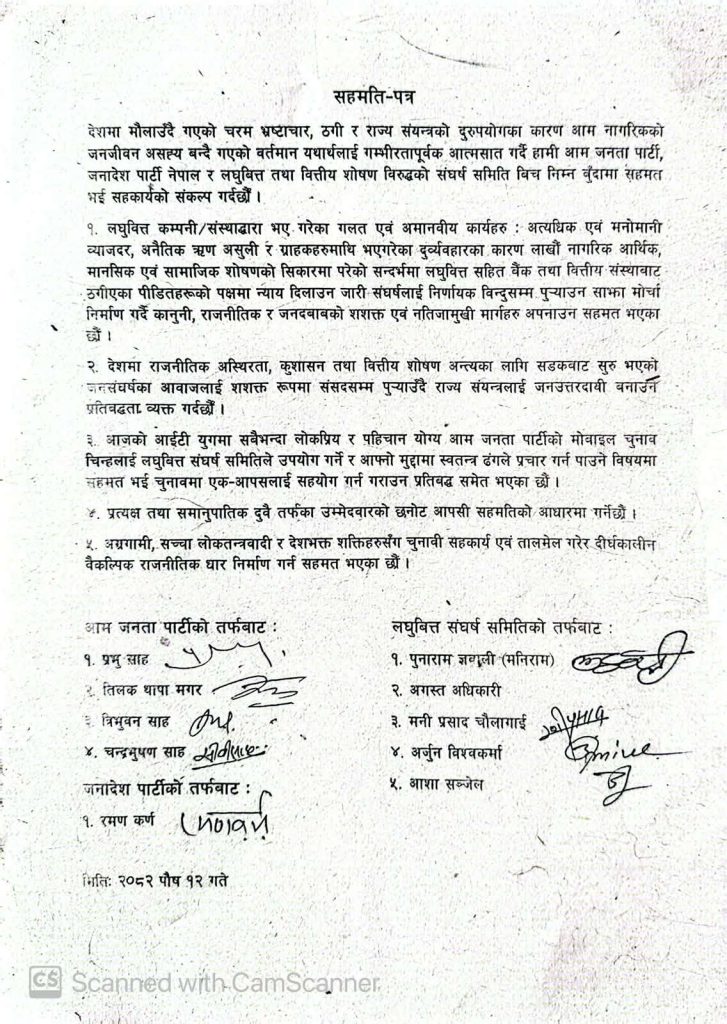 सहमति-पत्र
देशमा मौलाउँदै गएको चरम भ्रष्टाचार, ठगी र राज्य संयन्त्रको दुरुपयोगका कारण आम नागरिकको
जनजीवन असह्य बन्दै गएको वर्तमान यथार्थलाई गम्भीरतापूर्वक आत्मसात गर्दै हामी आम जनता पार्टी,
जनादेश पार्टी नेपाल र लघुवित्त तथा वित्तीय शोषण विरुद्धको संघर्ष समिति विच निम्न बुँदामा सहमत
भई सहकार्यको संकल्प गर्दछौँ ।
१. लघुवित्त कम्पनी/संस्थाद्वारा भए गरेका गलत एवं अमानवीय कार्यहरु : अत्यधिक एवं मनोमानी
व्याजदर, अनैतिक ऋण असुली र ग्राहकहरुमाथि भएगरेका दुर्व्यवहारका कारण लाखौं नागरिक आर्थिक,
मानसिक एवं सामाजिक शोषणको सिकारमा परेको सन्दर्भमा लघुवित्त सहित बैंक तथा वित्तीय संस्थाबाट
ठगीएका पीडितहरूको पक्षमा न्याय दिलाउन जारी संघर्षलाई निर्णायक विन्दुसम्म पुऱ्याउन साझा मोर्चा
निर्माण गर्दै कानुनी, राजनीतिक र जनदबाबको शशक्त एवं नतिजामुखी मार्गहरु अपनाउन सहमत भएका
छौं ।
२. देशमा राजनीतिक अस्थिरता, कुशासन तथा वित्तीय शोषण अन्त्यका लागि सडकवाट सुरु भएको
जनसंघर्षका आवाजलाई शशक्त रूपमा संसदसम्म पुऱ्याउँदै राज्य संयन्त्रलाई जनउत्तरदायी बनाउने
प्रतिबद्धता व्यक्त गर्दछौँ ।
३. आजको आईटी युगमा सबैभन्दा लोकप्रिय र पहिचान योग्य आम जनता पार्टीको मोबाइल चुनाव
चिन्हलाई लघुवित्त संघर्ष समितिले उपयोग गर्ने र आफ्नो मुद्दामा स्वतन्त्र ढंगले प्रचार गर्न पाउने विषयमा
सहमत भई चुनावमा एक-आपसलाई सहयोग गर्न गराउन प्रतिबद्ध समेत भएका छौं ।
४. प्रत्यक्ष तथा समानुपातिक दुवै तर्फका उम्मेदवारको छनोट आपसी सहमतिको आधारमा गर्नेछौँ ।
५. अग्रगामी, सच्चा लोकतन्त्रवादी र देशभक्त शक्तिहरुसँग चुनावी सहकार्य एवं तालमेल गरेर दीर्घकालीन
वैकल्पिक राजनीतिक धार निर्माण गर्न सहमत भएका छौं ।
आम जनता पार्टीको तर्फबाट :
१. प्रभु साह
२. तिलक थापा मगर
३. त्रिभुवन साह
४. चन्द्रभुषण साह
जनादेश पार्टीको तर्फबाट :
१. रमण कर्ण
लघुबित्त संघर्ष समितिको तर्फबाट :
१. पुनाराम ज्ञवली (मनिराम)
२. अगस्त अधिकारी
३. मनी प्रसाद चौलागाई
४. अर्जुन विश्वकर्मा
५. आशा सञ्जेल
मितिः २०८२ पौष १२ गते
CS Scanned with CamScanner